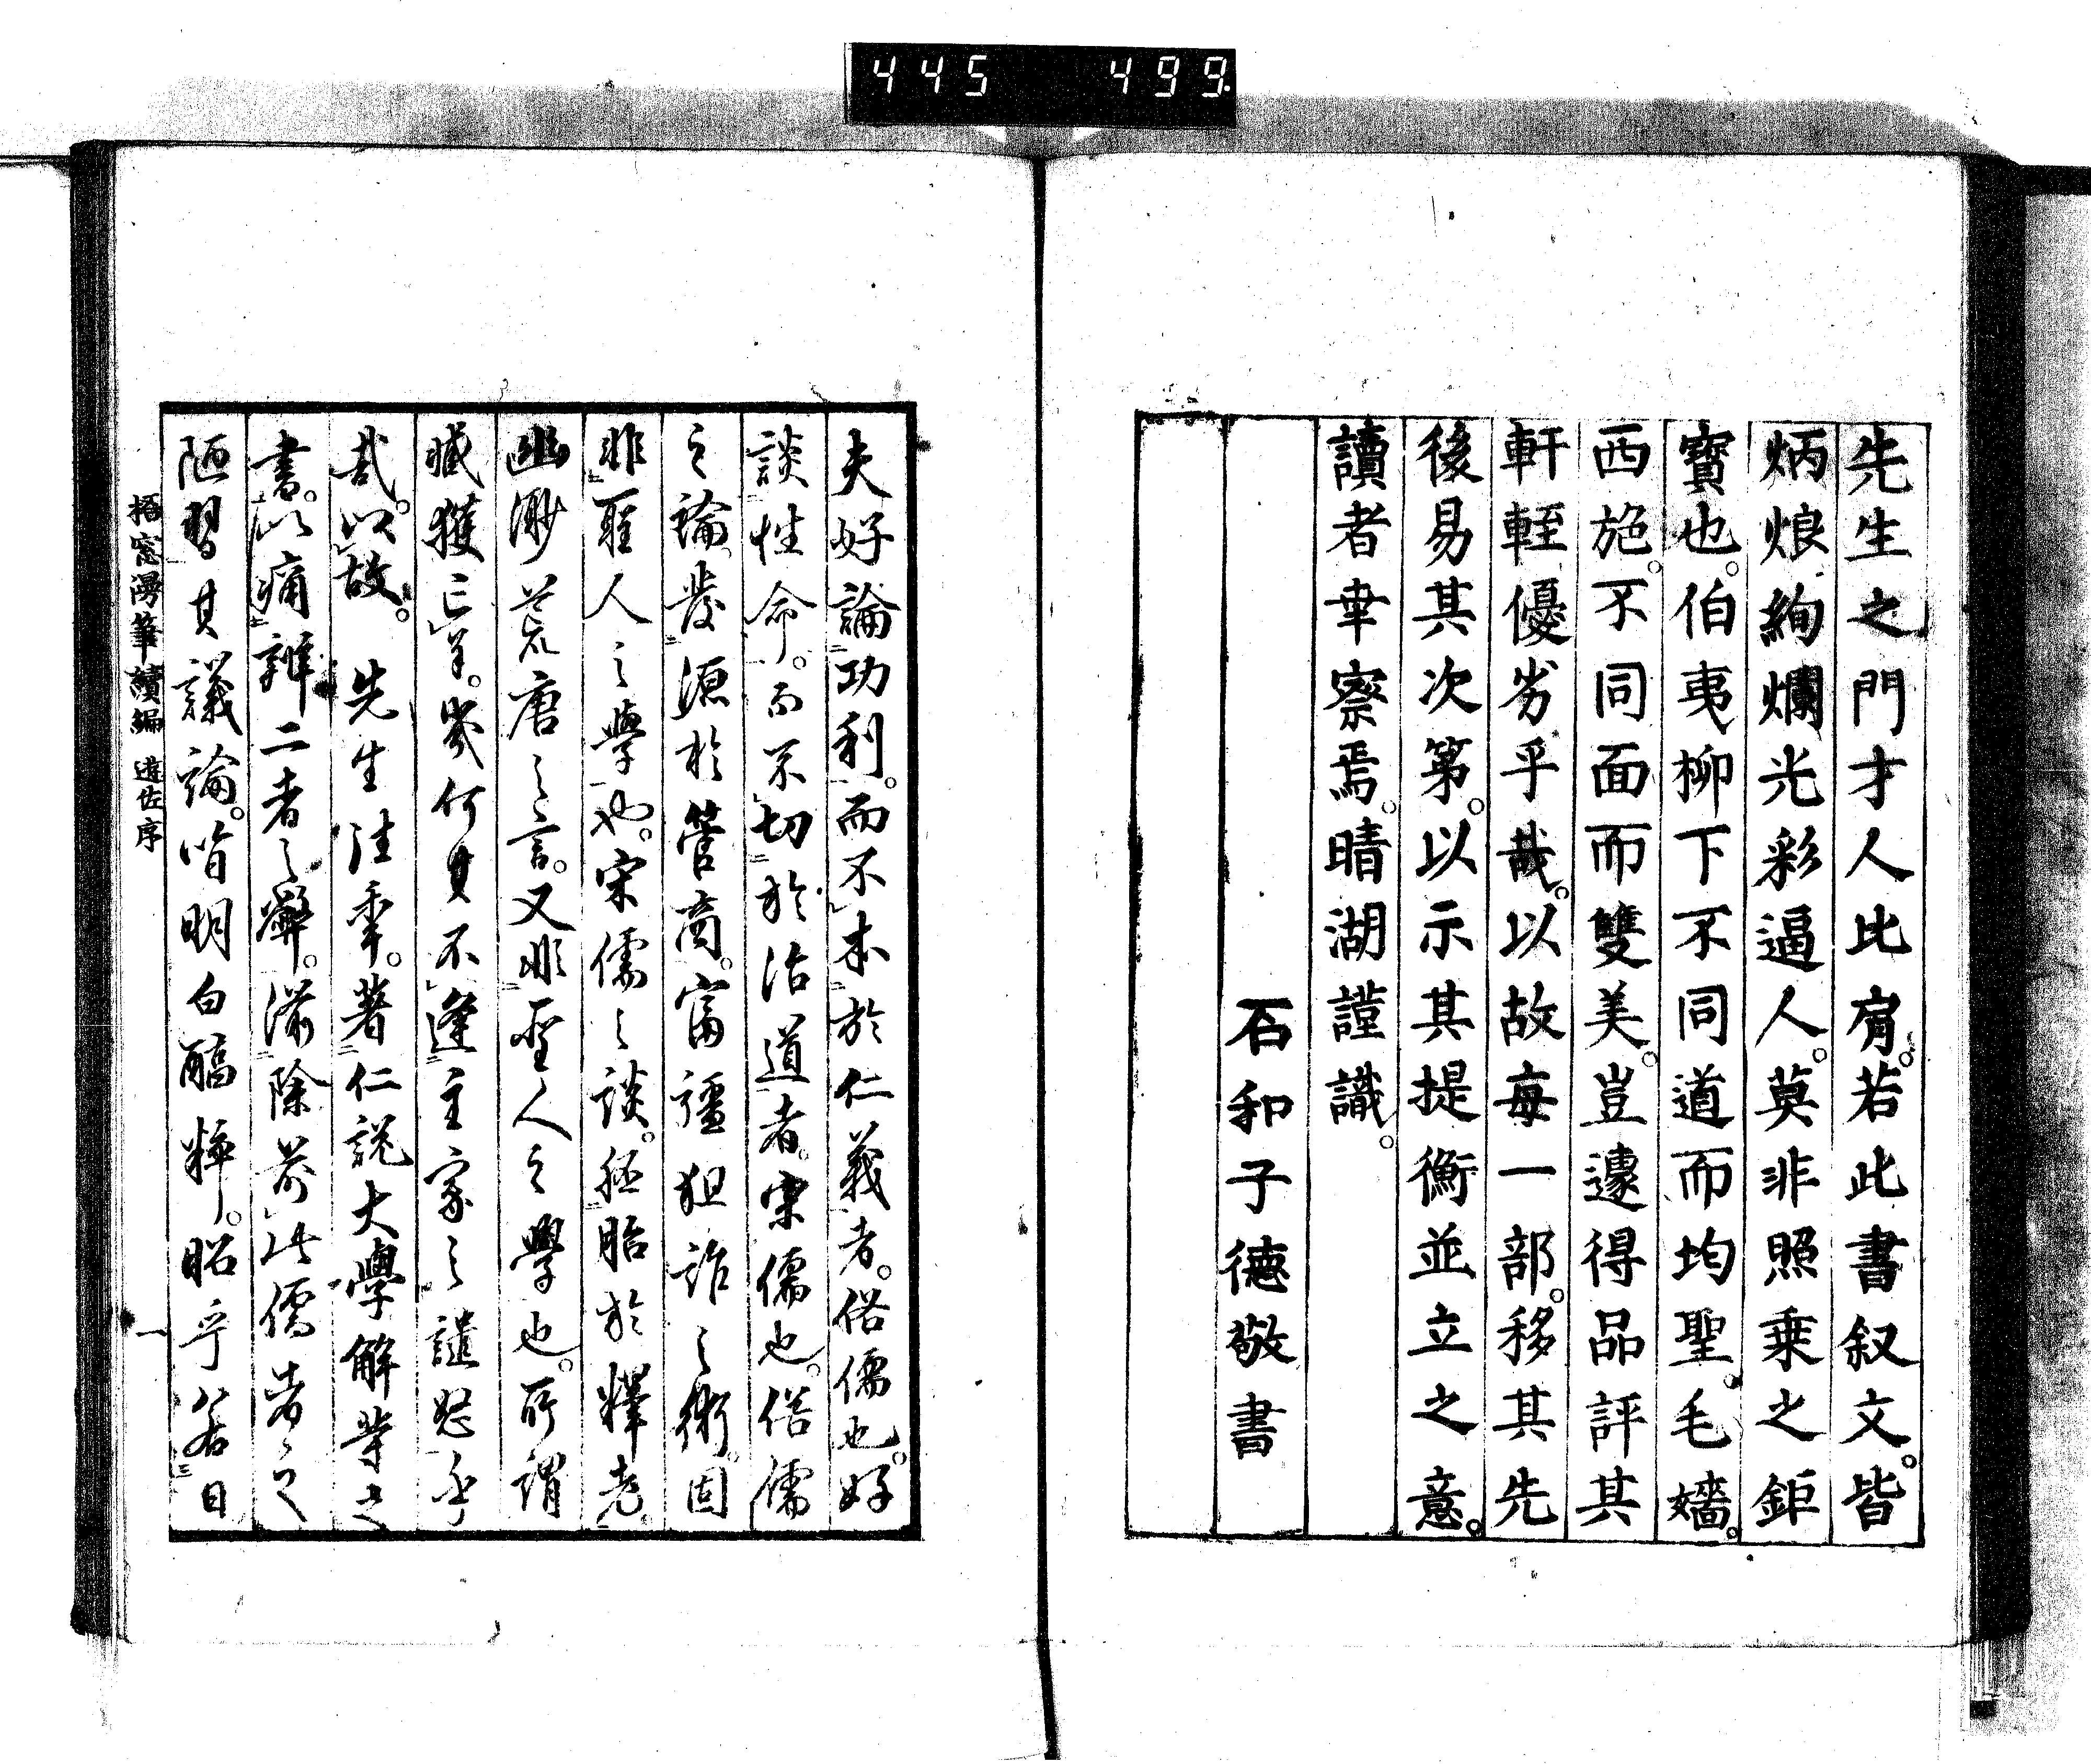 445 499
先生之門才人比肩。若此書叙文。皆
炳烺絢爛光彩逼人。莫非照乗之鉅
寳也。伯夷柳下不同道而均聖。毛嬙。
西施。不同面而雙美。豈遽得品評其
軒輊優劣乎哉。以故毎一部。移其先
後易其次第。以示其提衡並立之意。
讀者幸察焉。晴湖謹識。
石和子德敬書
夫好論功利。而不本於仁義者。俗儒也。好
談性命。而不切於治道者。宋儒也。俗儒
之論。發源於管商。富彊狙詐之術。固
非聖人之學也。宋儒之談。胚胎於釋老
幽渺荒唐之言。又非聖人之學也。所謂
臧獲亡羊。幾何其不逢主家之譴怒乎
哉。以故。先生注季。著仁説大學解等之
書。以痛辨二者之弊。滌除前此儒者之
陋習其議論。皆明白醕粹。昭乎若日
梧窓漫筆續編 遊佐序 一